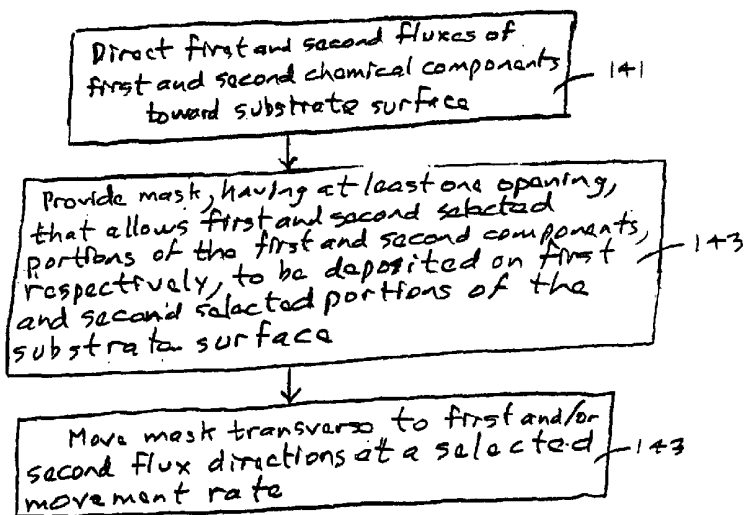 Direct first and second fluxes of
first and second chemical components
toward substrate surface
141
Provide mask, having at least one opening,
that allows first and second selected
portions of the first and second components,
respectively, to be deposited on first
and second selected portions of the
substrate surface
143
Move mask transverse to first and/or
second flux directions at a selected
movement rate
143